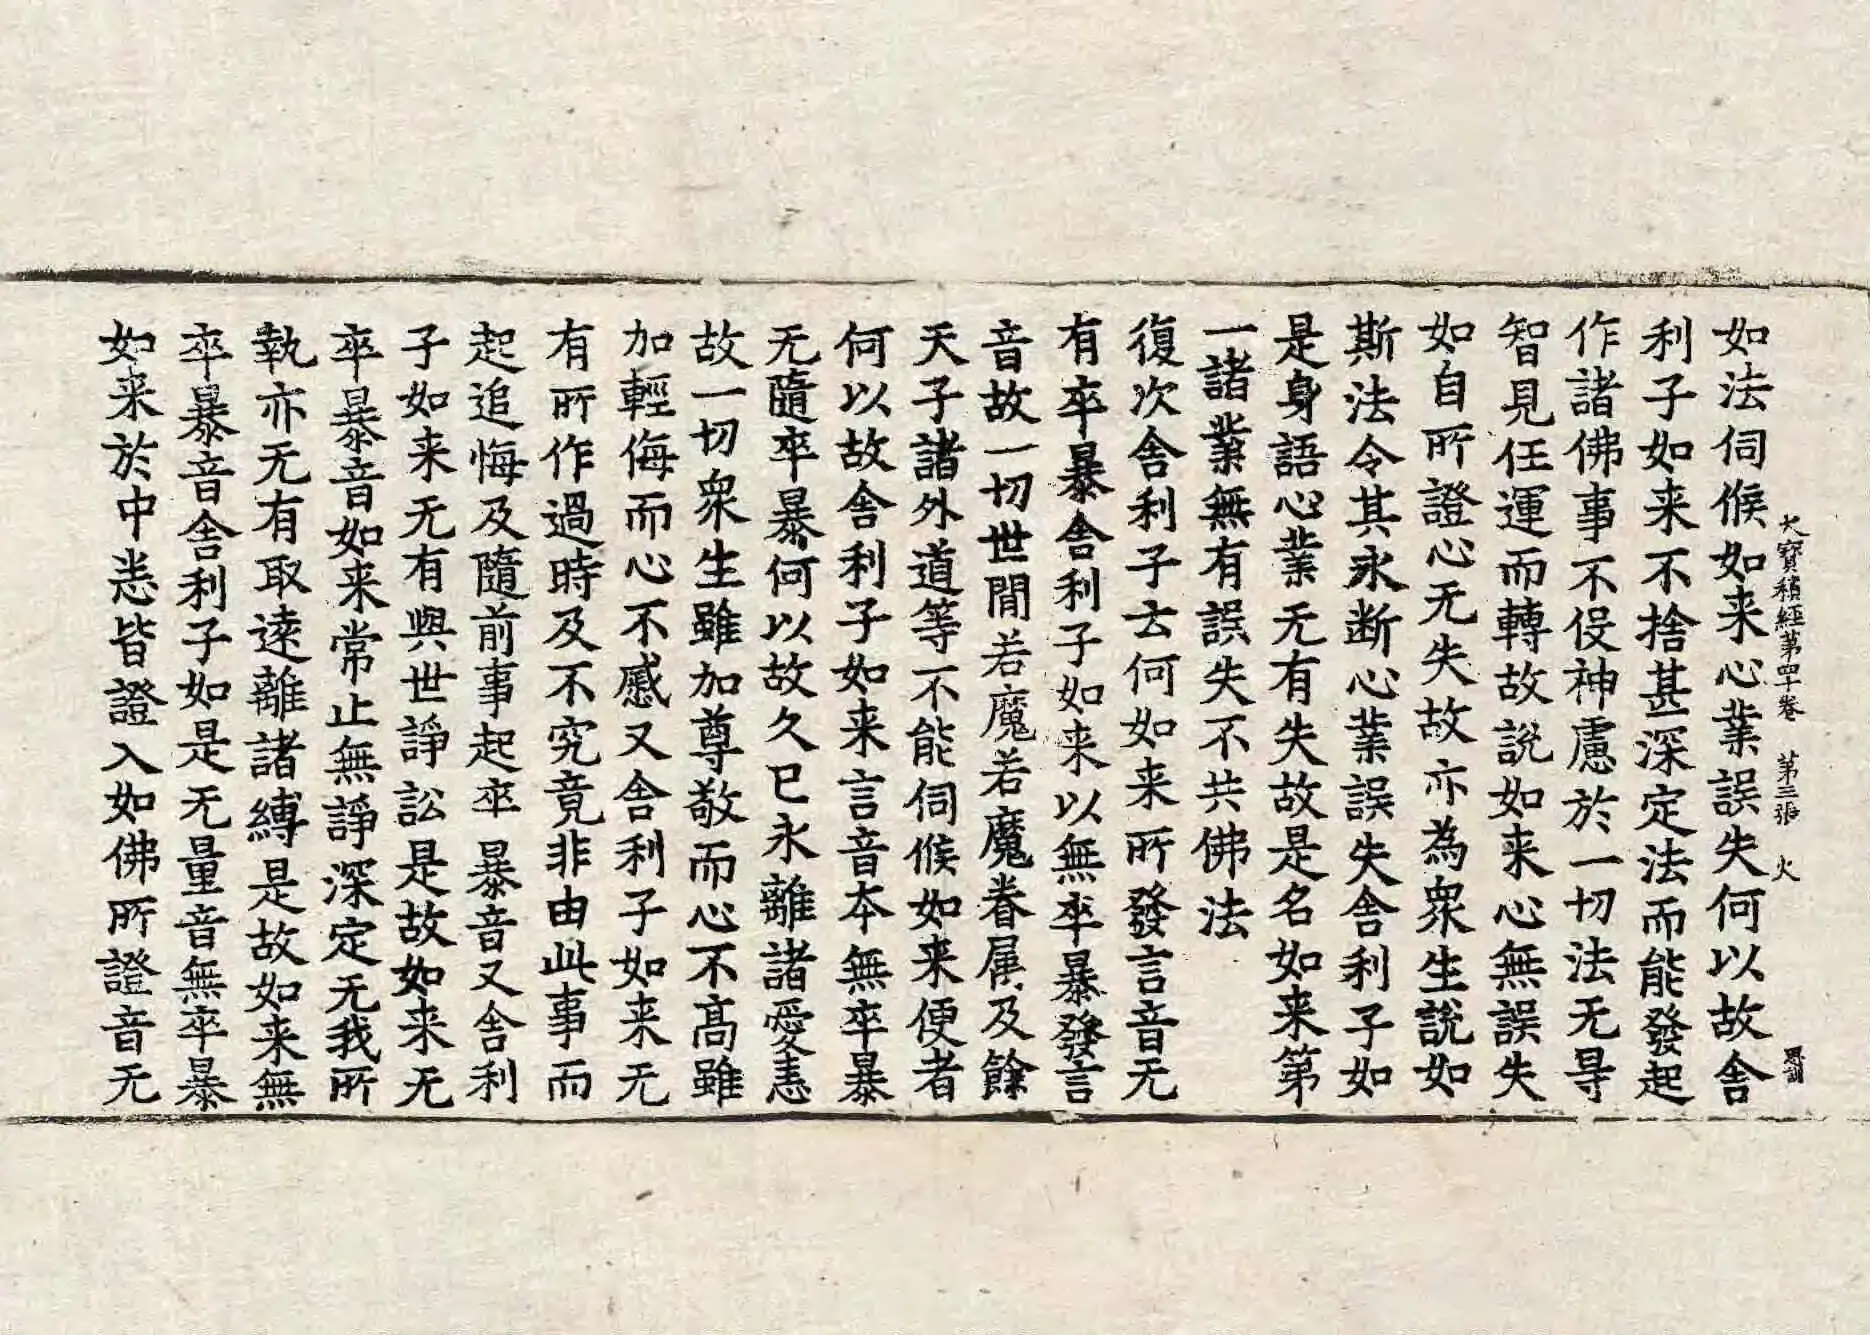 大寶積經第四十卷　第三張　火
如法伺候如来心業誤失何以故舍
利子如来不捨甚深定法而能發起
作諸佛事不役神慮於一切法无㝵
智見任運而轉故說如来心無誤失
如自所證心无失故亦為衆生說如
斯法令其永断心業誤失舍利子如
是身語心業无有失故是名如来第
一諸業無有誤失不共佛法
復次舍利子云何如来所發言音无
有卒暴舍利子如来以無卒暴發言
音故一切世間若魔若魔眷属及餘
天子諸外道等不能伺候如来便者
何以故舍利子如来言音夲無卒暴
无隨卒暴何以故久已永離諸愛恚
故一切衆生雖加尊敬而心不髙雖
加輕侮而心不慼又舍利子如来无
有所作過時及不究竟非由此事而
起追悔及隨前事起卒暴音又舍利
子如来无有與世諍訟是故如来无
卒暴音如来常止無諍深定无我所
執亦无有取逺離諸縛是故如来無
卒暴音舍利子如是无量音無卒暴
如来於中悉皆證入如佛所證音无